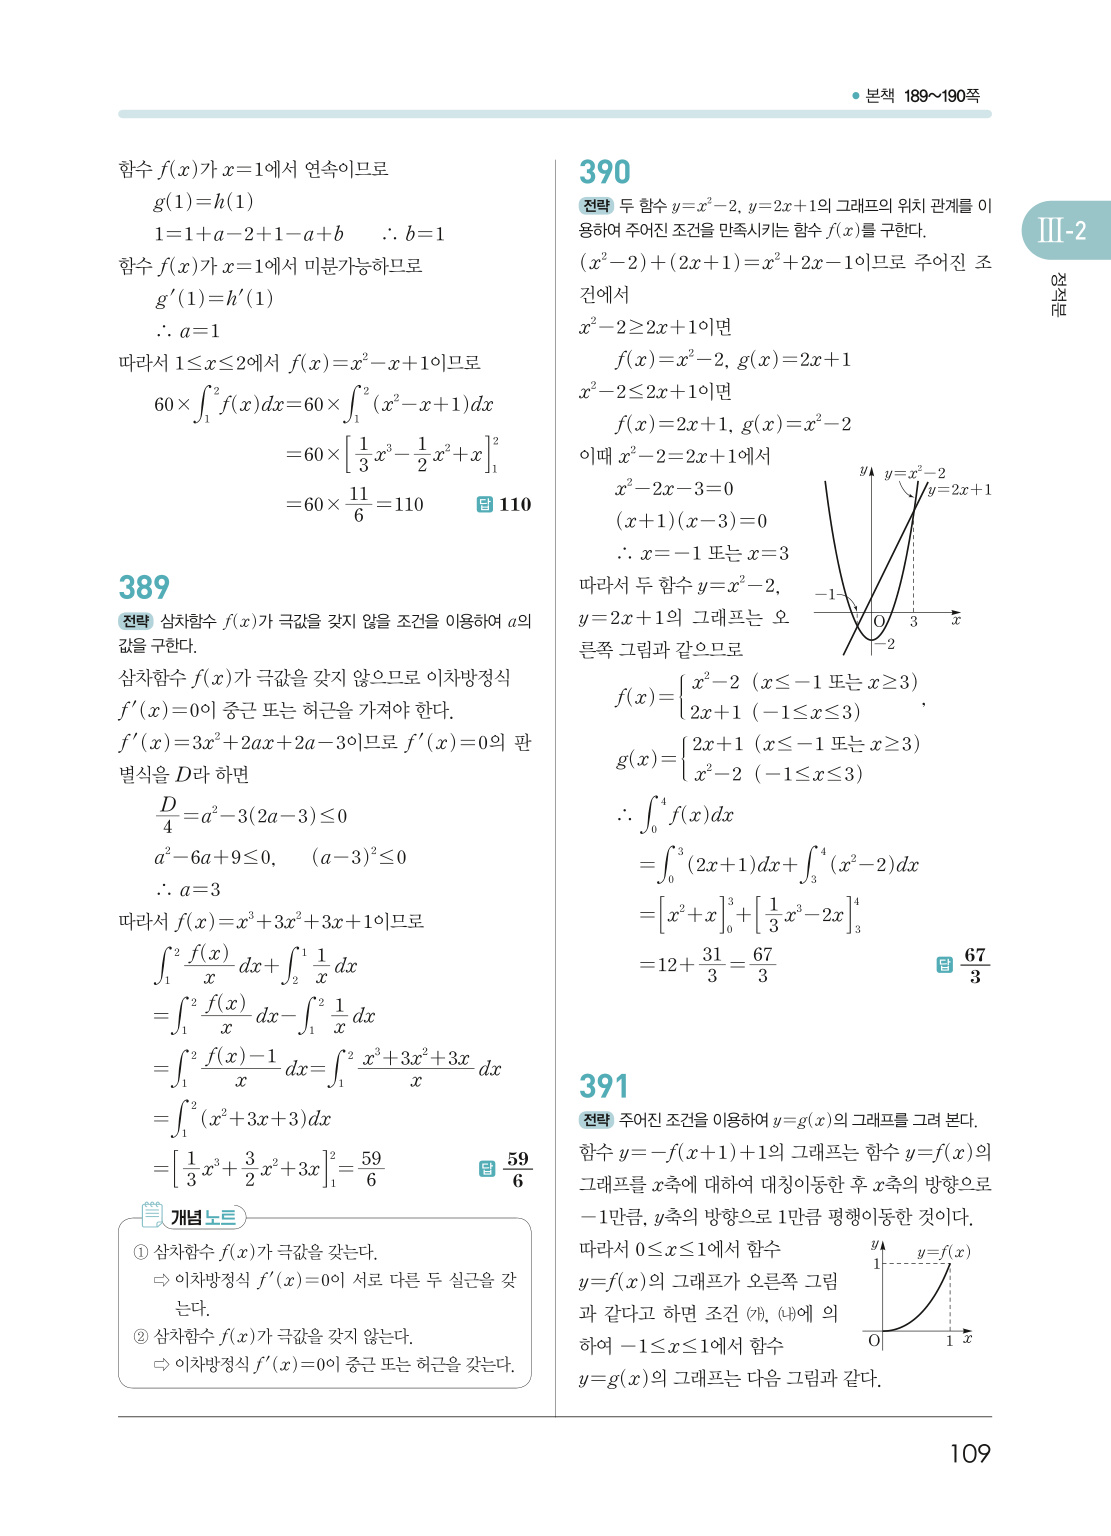 • 본책 189～190쪽
함수 f(x)가 x=1에서 연속이므로
g(1)=h(1)
1=1+a-2+1-a+b ∴ b=1
함수 f(x)가 x=1에서 미분가능하므로
g′(1)=h′(1)
∴ a=1
따라서 1≤x≤2에서 f(x)=x²-x+1이므로
60×∫₁² f(x)dx=60×∫₁² (x²-x+1)dx
=60×[1/3 x³-1/2 x²+x]₁²
=60×11/6=110 답 110
389
전략 삼차함수 f(x)가 극값을 갖지 않을 조건을 이용하여 a의
값을 구한다.
삼차함수 f(x)가 극값을 갖지 않으므로 이차방정식
f′(x)=0이 중근 또는 허근을 가져야 한다.
f′(x)=3x²+2ax+2a-3이므로 f′(x)=0의 판
별식을 D라 하면
D/4=a²-3(2a-3)≤0
a²-6a+9≤0, (a-3)²≤0
∴ a=3
따라서 f(x)=x³+3x²+3x+1이므로
∫₁² f(x)/x dx+∫₂¹ 1/x dx
=∫₁² f(x)/x dx-∫₁² 1/x dx
=∫₁² (f(x)-1)/x dx=∫₁² (x³+3x²+3x)/x dx
=∫₁² (x²+3x+3)dx
=[1/3 x³+3/2 x²+3x]₁²=59/6 답 59/6
개념 노트
① 삼차함수 f(x)가 극값을 갖는다.
⇨ 이차방정식 f′(x)=0이 서로 다른 두 실근을 갖
는다.
② 삼차함수 f(x)가 극값을 갖지 않는다.
⇨ 이차방정식 f′(x)=0이 중근 또는 허근을 갖는다.
390
전략 두 함수 y=x²-2, y=2x+1의 그래프의 위치 관계를 이
용하여 주어진 조건을 만족시키는 함수 f(x)를 구한다.
(x²-2)+(2x+1)=x²+2x-1이므로 주어진 조
건에서
x²-2≥2x+1이면
f(x)=x²-2, g(x)=2x+1
x²-2≤2x+1이면
f(x)=2x+1, g(x)=x²-2
이때 x²-2=2x+1에서
x²-2x-3=0
(x+1)(x-3)=0
∴ x=-1 또는 x=3
따라서 두 함수 y=x²-2,
y=2x+1의 그래프는 오
른쪽 그림과 같으므로
y y=x²-2
y=2x+1
-1
O 3 x
-2
f(x)={x²-2 (x≤-1 또는 x≥3)
2x+1 (-1≤x≤3) ,
g(x)={2x+1 (x≤-1 또는 x≥3)
x²-2 (-1≤x≤3)
∴ ∫₀⁴ f(x)dx
=∫₀³ (2x+1)dx+∫₃⁴ (x²-2)dx
=[x²+x]₀³+[1/3 x³-2x]₃⁴
=12+31/3=67/3 답 67/3
391
전략 주어진 조건을 이용하여 y=g(x)의 그래프를 그려 본다.
함수 y=-f(x+1)+1의 그래프는 함수 y=f(x)의
그래프를 x축에 대하여 대칭이동한 후 x축의 방향으로
-1만큼, y축의 방향으로 1만큼 평행이동한 것이다.
따라서 0≤x≤1에서 함수
y=f(x)의 그래프가 오른쪽 그림
과 같다고 하면 조건 ㈎, ㈏에 의
하여 -1≤x≤1에서 함수
y=g(x)의 그래프는 다음 그림과 같다.
y y=f(x)
1
O 1 x
Ⅲ-2
정적분
109